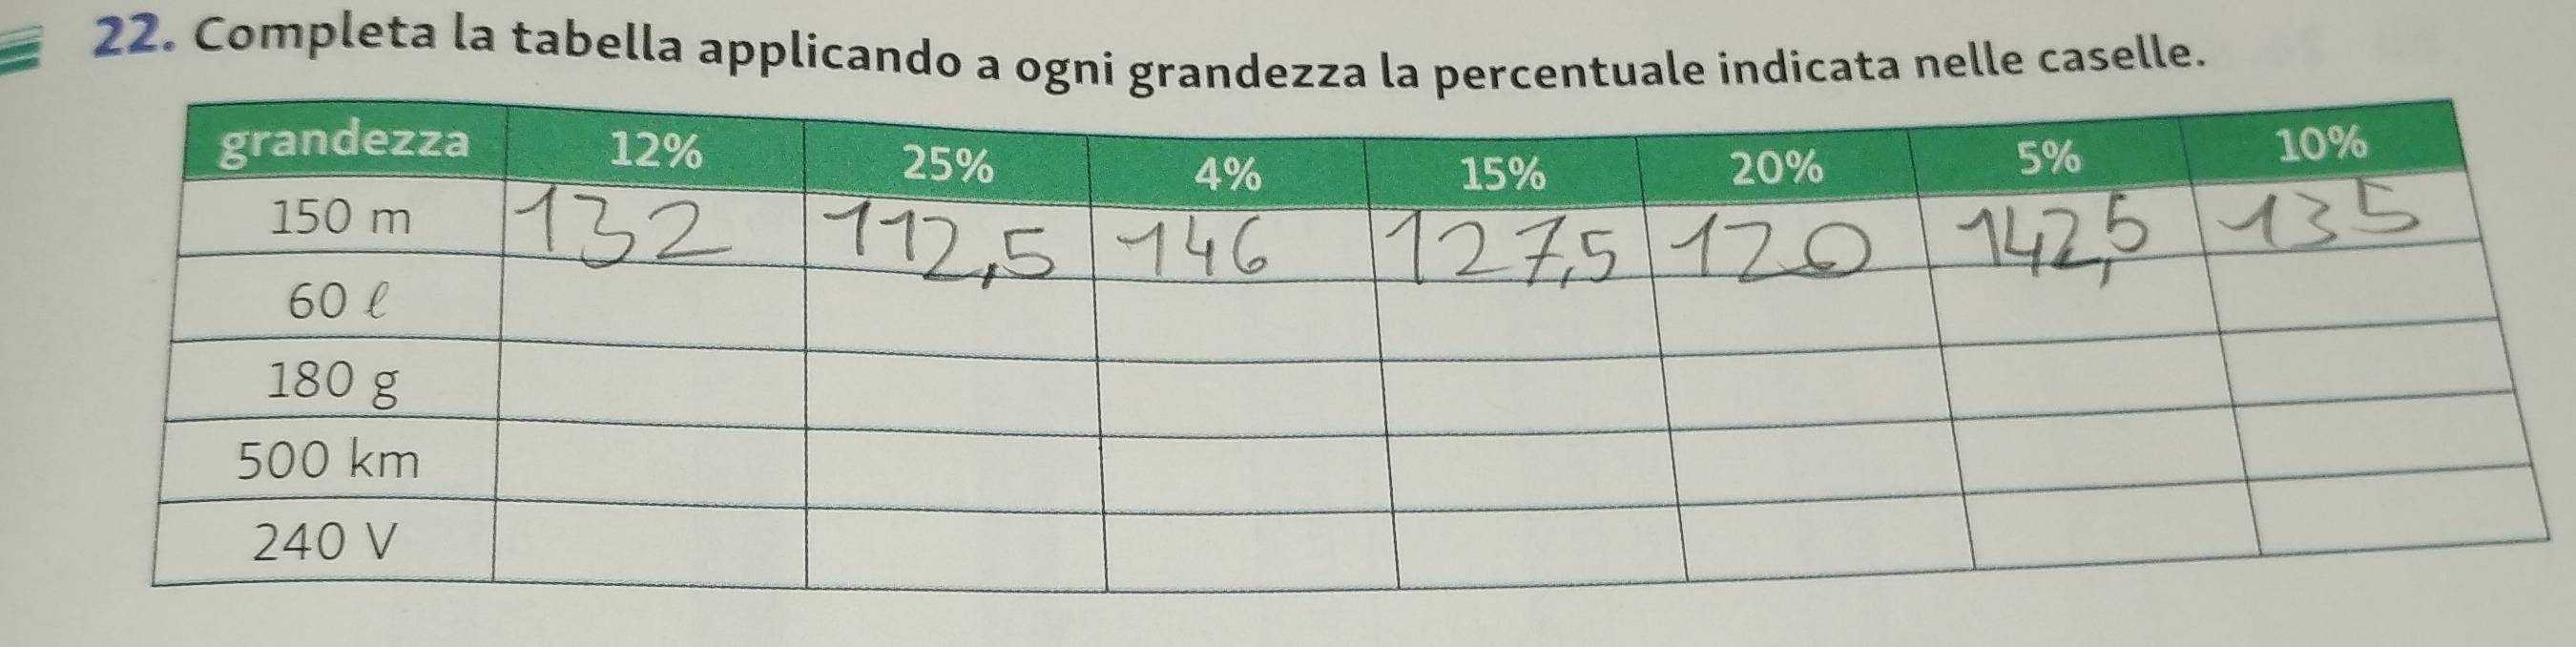 22. Completa la tabella applicando a ogni grandezza la percentuale indicata nelle caselle.
grandezza 12% 25% 4% 15% 20% 5% 10%
150 m 132 112,5 146 127,5 120 142,5 135
60 ℓ
180 g
500 km
240 V